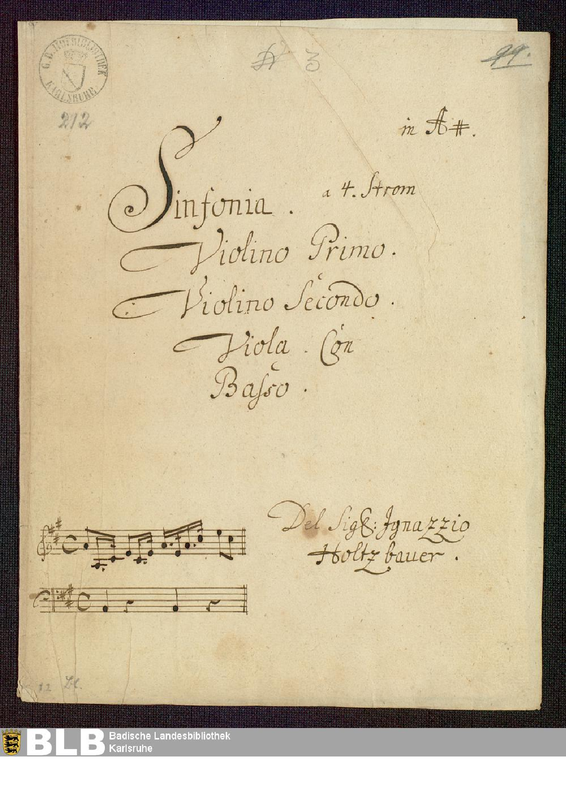 G. B. HOFBIBLIOTHEK
KARLSRUHE.
212
3
in A#.
Sinfonia. a 4. Strom
Violino Primo.
Violino Secondo.
Viola. Con
Basso.
Del Sigl: Ignazzio
Holtzbauer.
BLB Badische Landesbibliothek
Karlsruhe